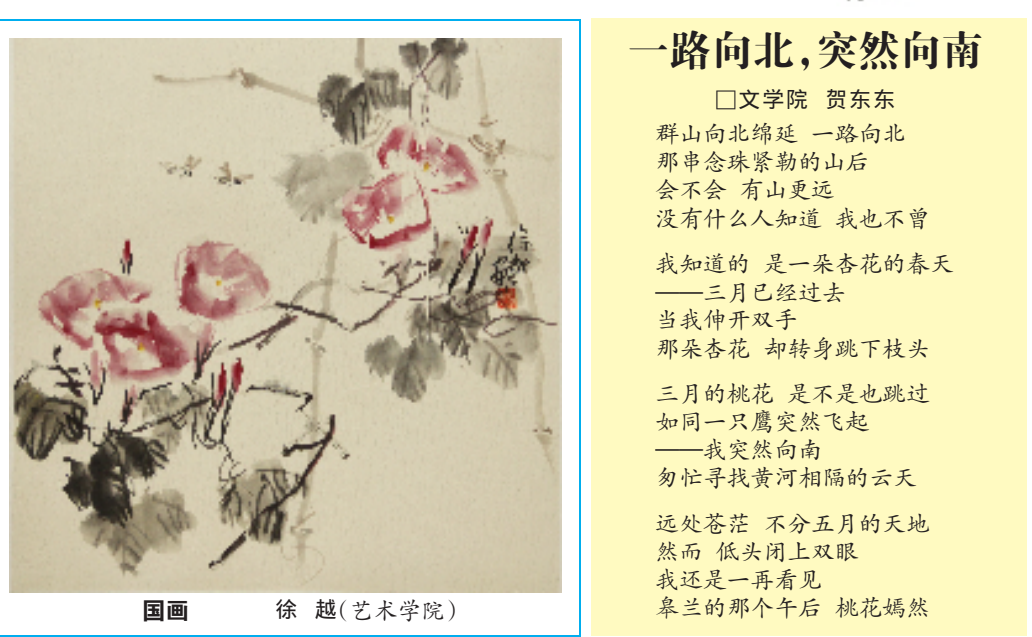 国画 徐 越(艺术学院)
一路向北,突然向南
□文学院 贺东东
群山向北绵延 一路向北
那串念珠紧勒的山后
会不会 有山更远
没有什么人知道 我也不曾
我知道的 是一朵杏花的春天
——三月已经过去
当我伸开双手
那朵杏花 却转身跳下枝头
三月的桃花 是不是也跳过
如同一只鹰突然飞起
——我突然向南
匆忙寻找黄河相隔的云天
远处苍茫 不分五月的天地
然而 低头闭上双眼
我还是一再看见
皋兰的那个午后 桃花嫣然